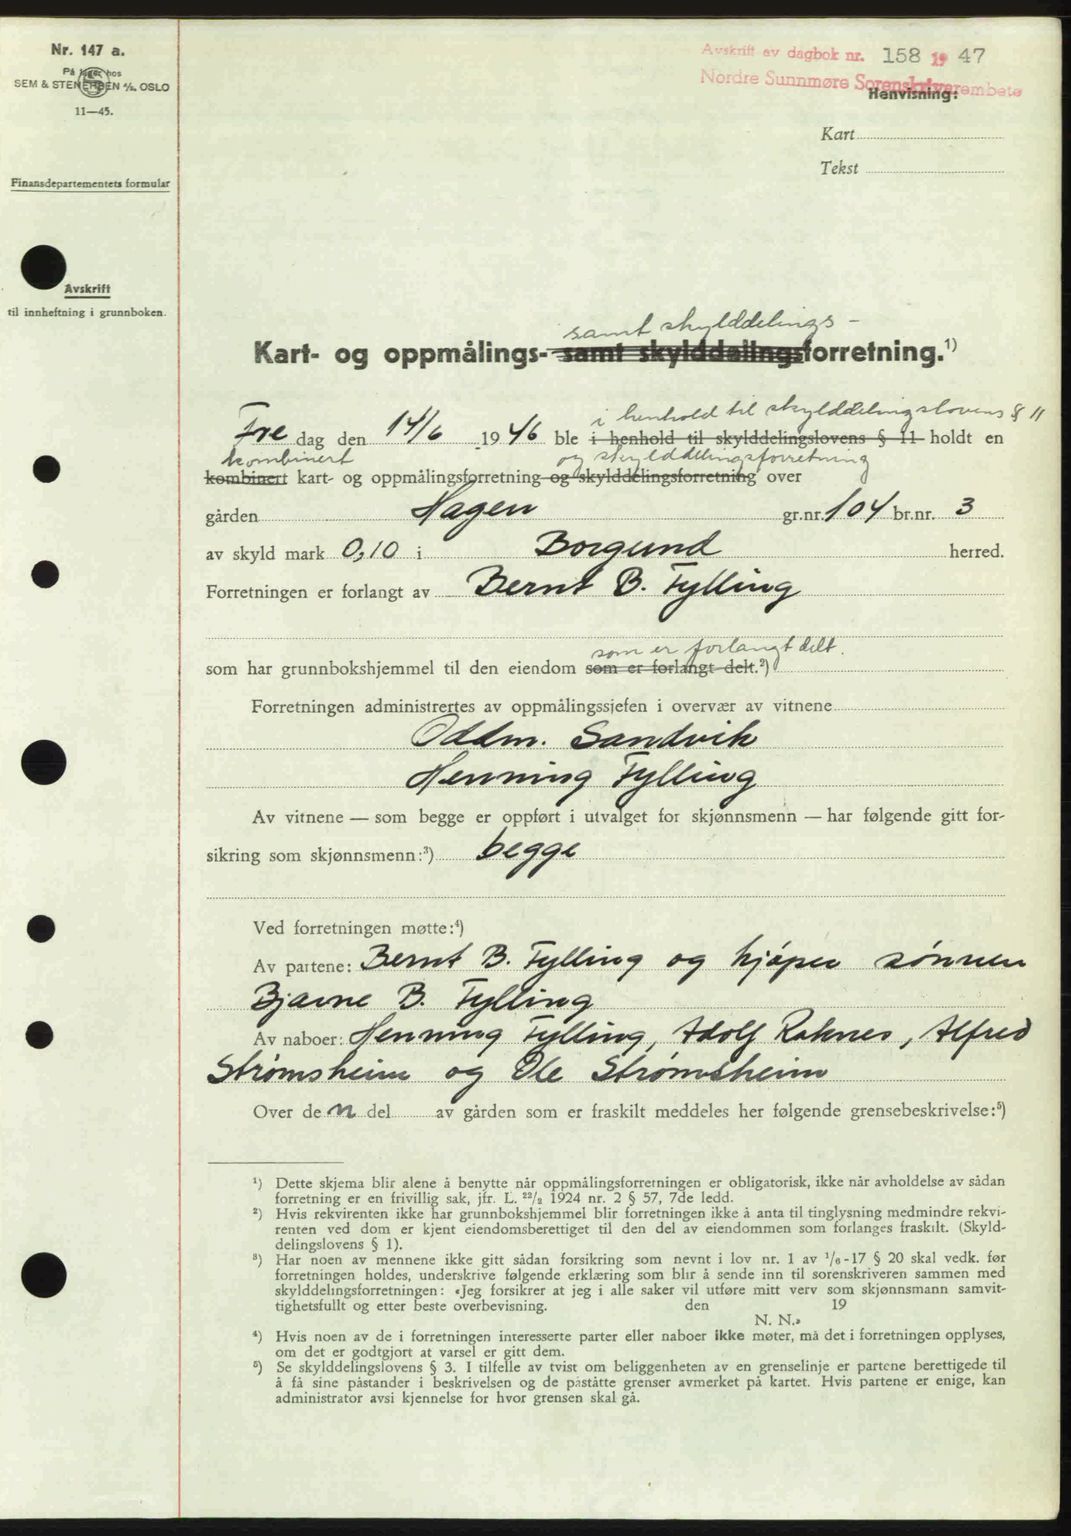 Nr. 147 a.
På lager hos
SEM & STENERSEN A/S, OSLO
11—45.
Finansdepartementets formular
Avskrift
til innheftning i grunnboken.
Avskrift av dagbok nr. 158 19 47
Nordre Sunnmøre Sorenskriverembete
Henvisning:
Kart
Tekst
samt skylddelings-
Kart- og oppmålings- samt skylddelingsforretning.¹)
i henhold til skylddelingslovens § 11
Fre dag den 14/6 1946 ble i henhold til skylddelingslovens § 11 holdt en
kombinert og skylddelingsforretning
kombinert kart- og oppmålingsforretning og skylddelingsforretning over
gården Hagen gr.nr. 104 br.nr. 3
av skyld mark 0,10 i Borgund herred.
Forretningen er forlangt av Bernt B. Fylling
som er forlangt delt.
som har grunnbokshjemmel til den eiendom som er forlangt delt.²)
Forretningen administrertes av oppmålingssjefen i overvær av vitnene
Oddm. Sandvik
Henning Fylling
Av vitnene — som begge er oppført i utvalget for skjønnsmenn — har følgende gitt for-
sikring som skjønnsmenn:³) begge
Ved forretningen møtte:⁴)
Av partene: Bernt B. Fylling og kjøper sønnen
Bjarne B. Fylling
Av naboer: Henning Fylling, Adolf Raknes, Alfred
Strømsheim og Ole Strømsheim
Over de n del av gården som er fraskilt meddeles her følgende grensebeskrivelse:⁵)
¹) Dette skjema blir alene å benytte når oppmålingsforretningen er obligatorisk, ikke når avholdelse av sådan
forretning er en frivillig sak, jfr. L. 22/2 1924 nr. 2 § 57, 7de ledd.
²) Hvis rekvirenten ikke har grunnbokshjemmel blir forretningen ikke å anta til tinglysning medmindre rekvi-
renten ved dom er kjent eiendomsberettiget til den del av eiendommen som forlanges fraskilt. (Skyld-
delingslovens § 1).
³) Har noen av mennene ikke gitt sådan forsikring som nevnt i lov nr. 1 av 1/6-17 § 20 skal vedk. før
forretningen holdes, underskrive følgende erklæring som blir å sende inn til sorenskriveren sammen med
skylddelingsforretningen: «Jeg forsikrer at jeg i alle saker vil utføre mitt verv som skjønnsmann samvit-
tighetsfullt og etter beste overbevisning. den 19
N. N.»
⁴) Hvis noen av de i forretningen interesserte parter eller naboer ikke møter, må det i forretningen opplyses,
om det er godtgjort at varsel er gitt dem.
⁵) Se skylddelingslovens § 3. I tilfelle av tvist om beliggenheten av en grenselinje er partene berettigede til
å få sine påstander i beskrivelsen og de påståtte grenser avmerket på kartet. Hvis partene er enige, kan
administrator avsi kjennelse for hvor grensen skal gå.